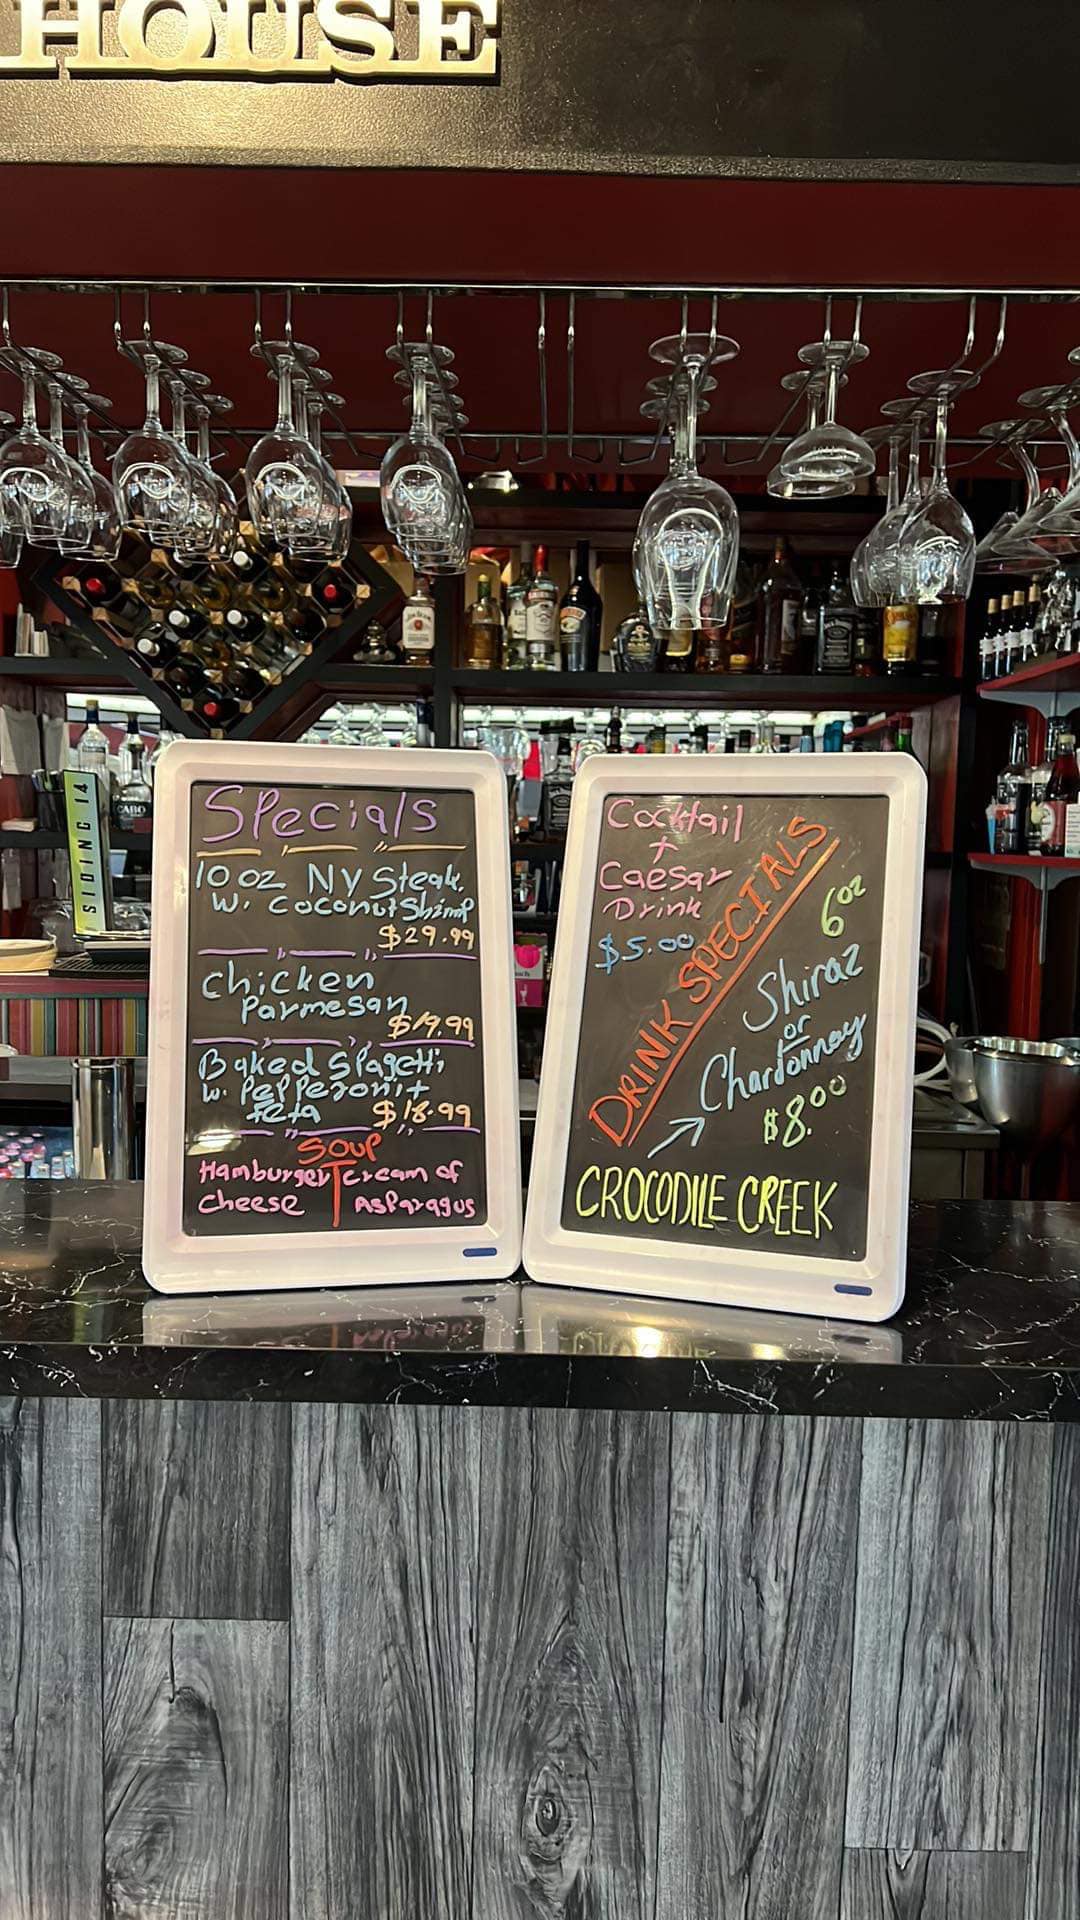 HOUSE
SIDING 14
CABO
Specials
10 oz NY Steak
w. Coconut Shrimp
$29.99
Chicken
Parmesan
$19.99
Baked Spagetti
w. Pepperoni +
feta $18.99
Soup
Hamburger
cheese
cream of
Asparagus
Cocktail
+
Caesar
Drink
$5.00
DRINK SPECIALS
6oz
Shiraz
or
Chardonnay
$8.00
CROCODILE CREEK